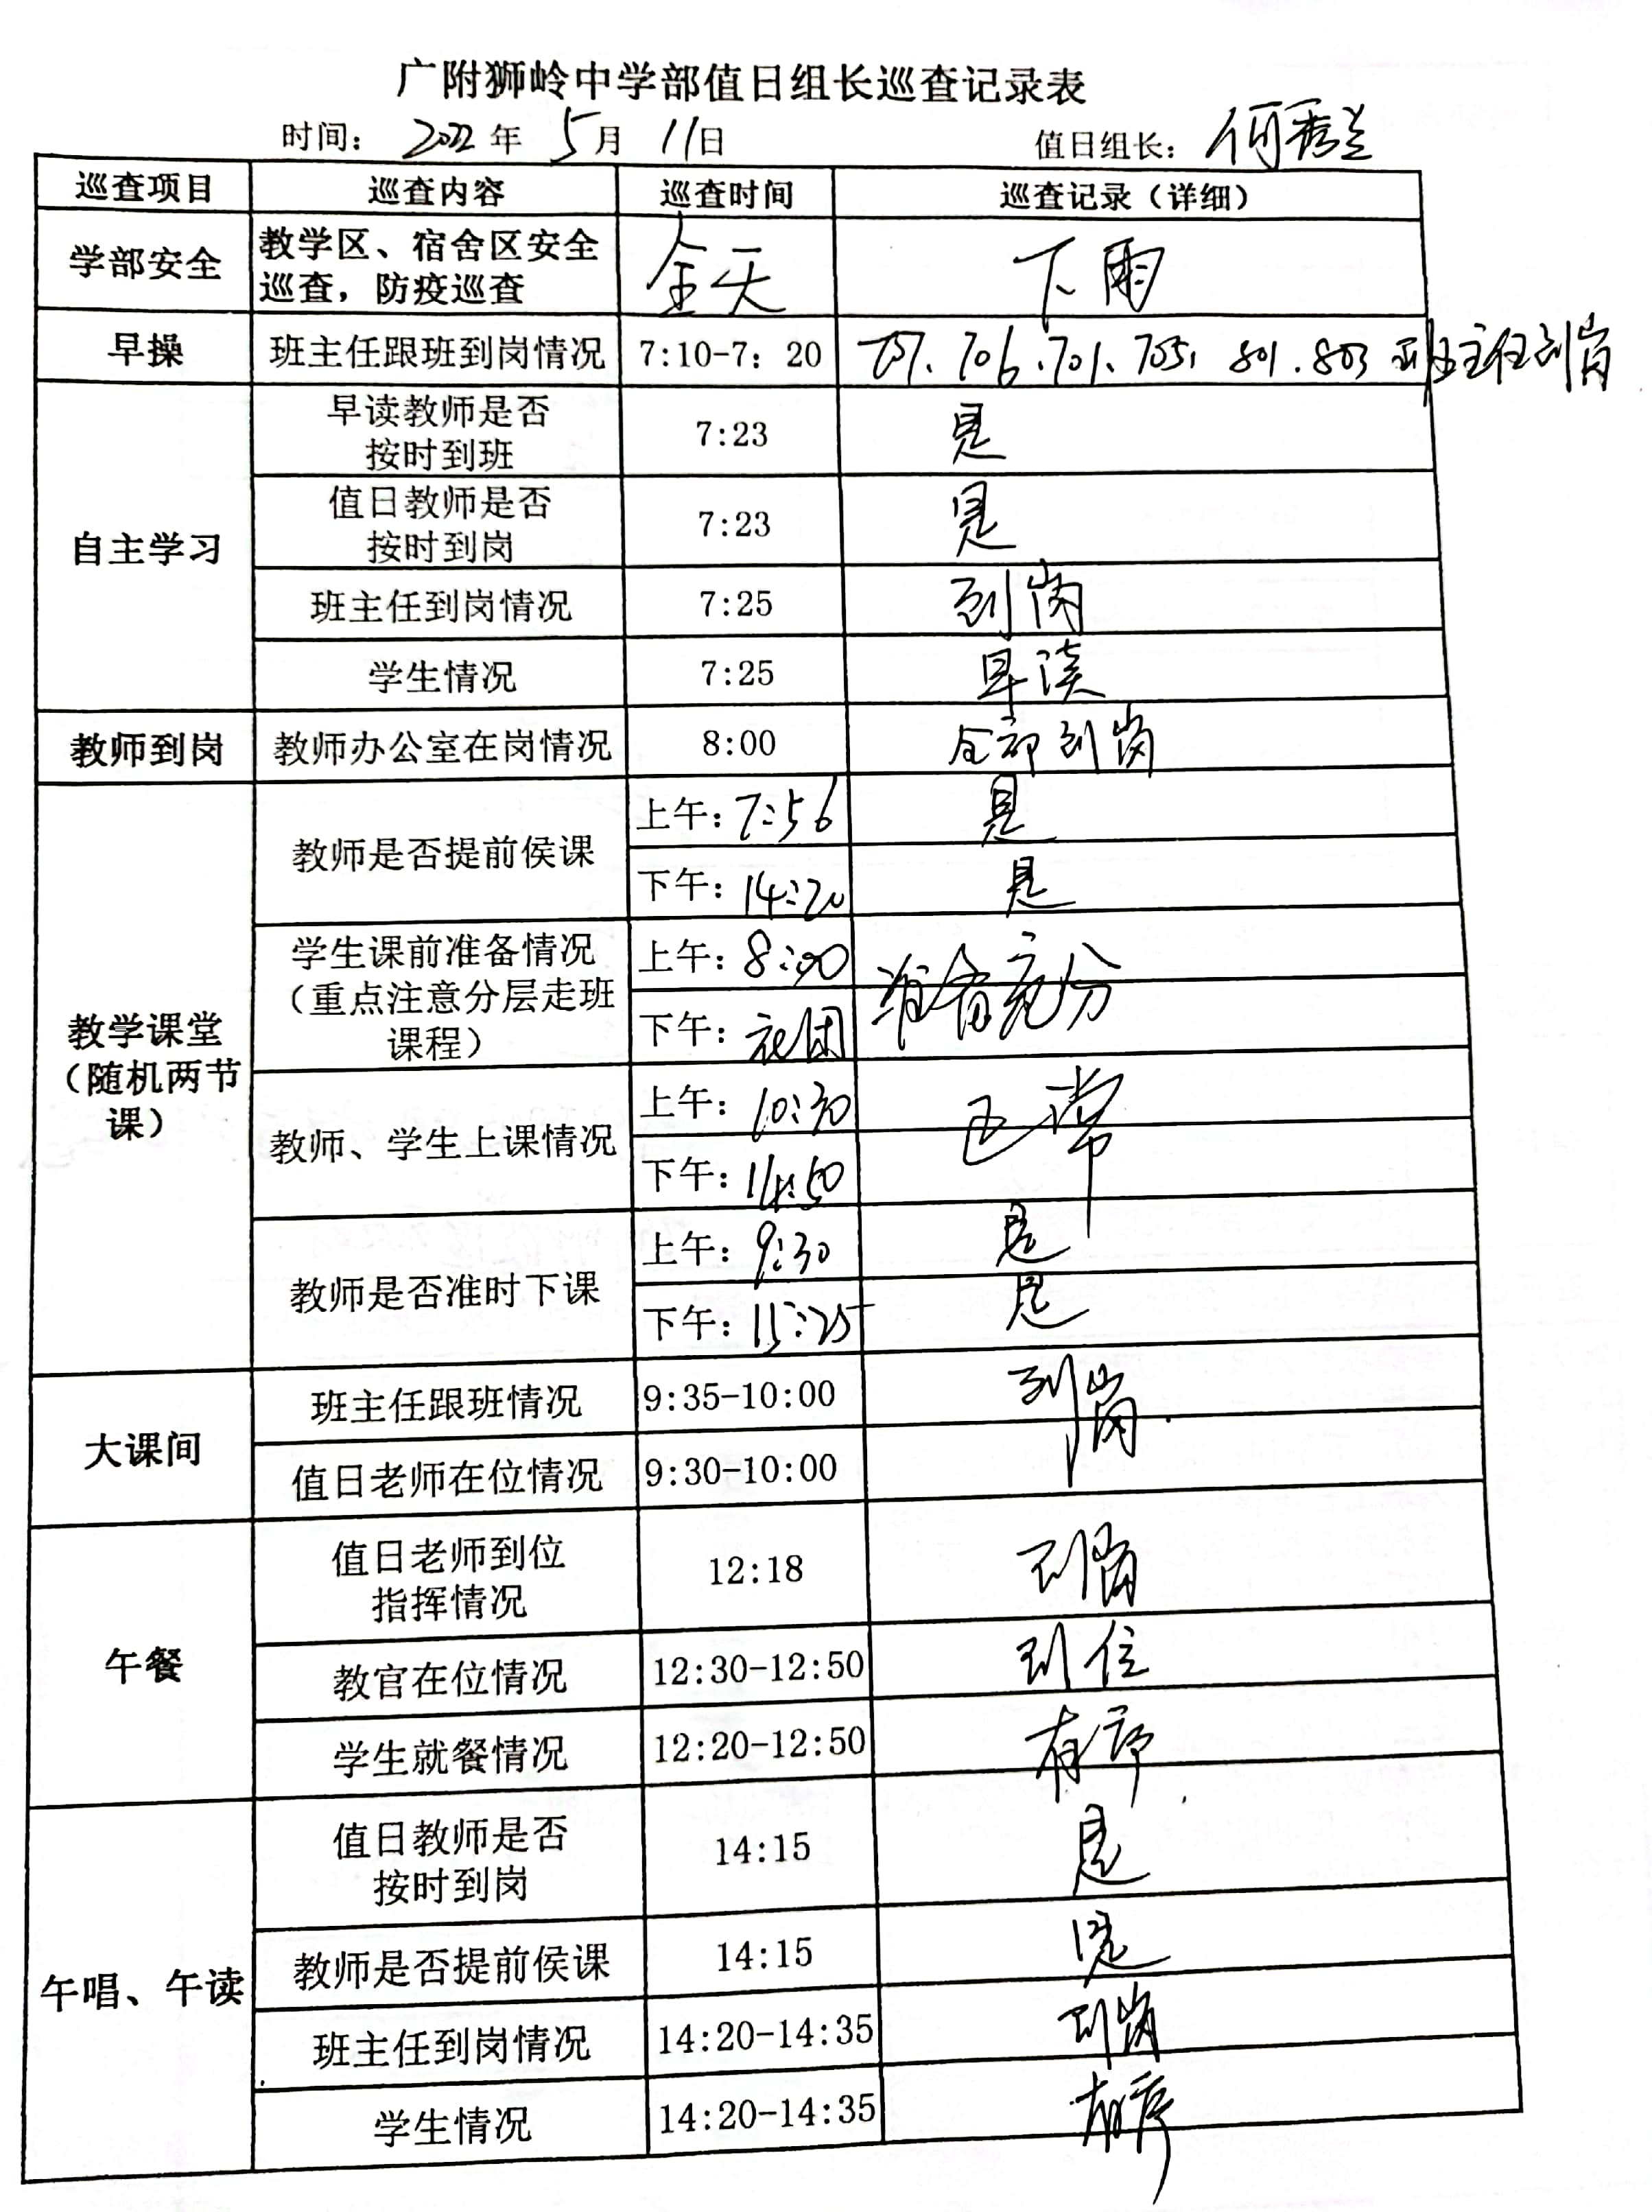 广附狮岭中学部值日组长巡查记录表
时间: 2022年 5月 11日 值日组长: 何秀兰
巡查项目 巡查内容 巡查时间 巡查记录(详细)
学部安全 教学区、宿舍区安全 全天 下雨
巡查,防疫巡查
早操 班主任跟班到岗情况 7:10-7: 20 706、701、705、801、803 班主任到岗
自主学习
早读教师是否
按时到班 7:23 是
值日教师是否
按时到岗 7:23 是
班主任到岗情况 7:25 到岗
学生情况 7:25 早读
教师到岗 教师办公室在岗情况 8:00 全部到岗
教学课堂
(随机两节
课)
教师是否提前侯课 上午: 7:56 是
下午: 14:20 是
学生课前准备情况
(重点注意分层走班
课程)
上午: 8:00 准备充分
下午: 社团
教师、学生上课情况 上午: 10:30 正常
下午:
教师是否准时下课 上午: 9:30 是
下午: 15:25 是
大课间
班主任跟班情况 9:35-10:00 到岗
值日老师在位情况 9:30-10:00
午餐
值日老师到位
指挥情况 12:18 到岗
教官在位情况 12:30-12:50 到位
学生就餐情况 12:20-12:50 有序
午唱、午读
值日教师是否
按时到岗 14:15 是
教师是否提前侯课 14:15 是
班主任到岗情况 14:20-14:35 到岗
学生情况 14:20-14:35 有序